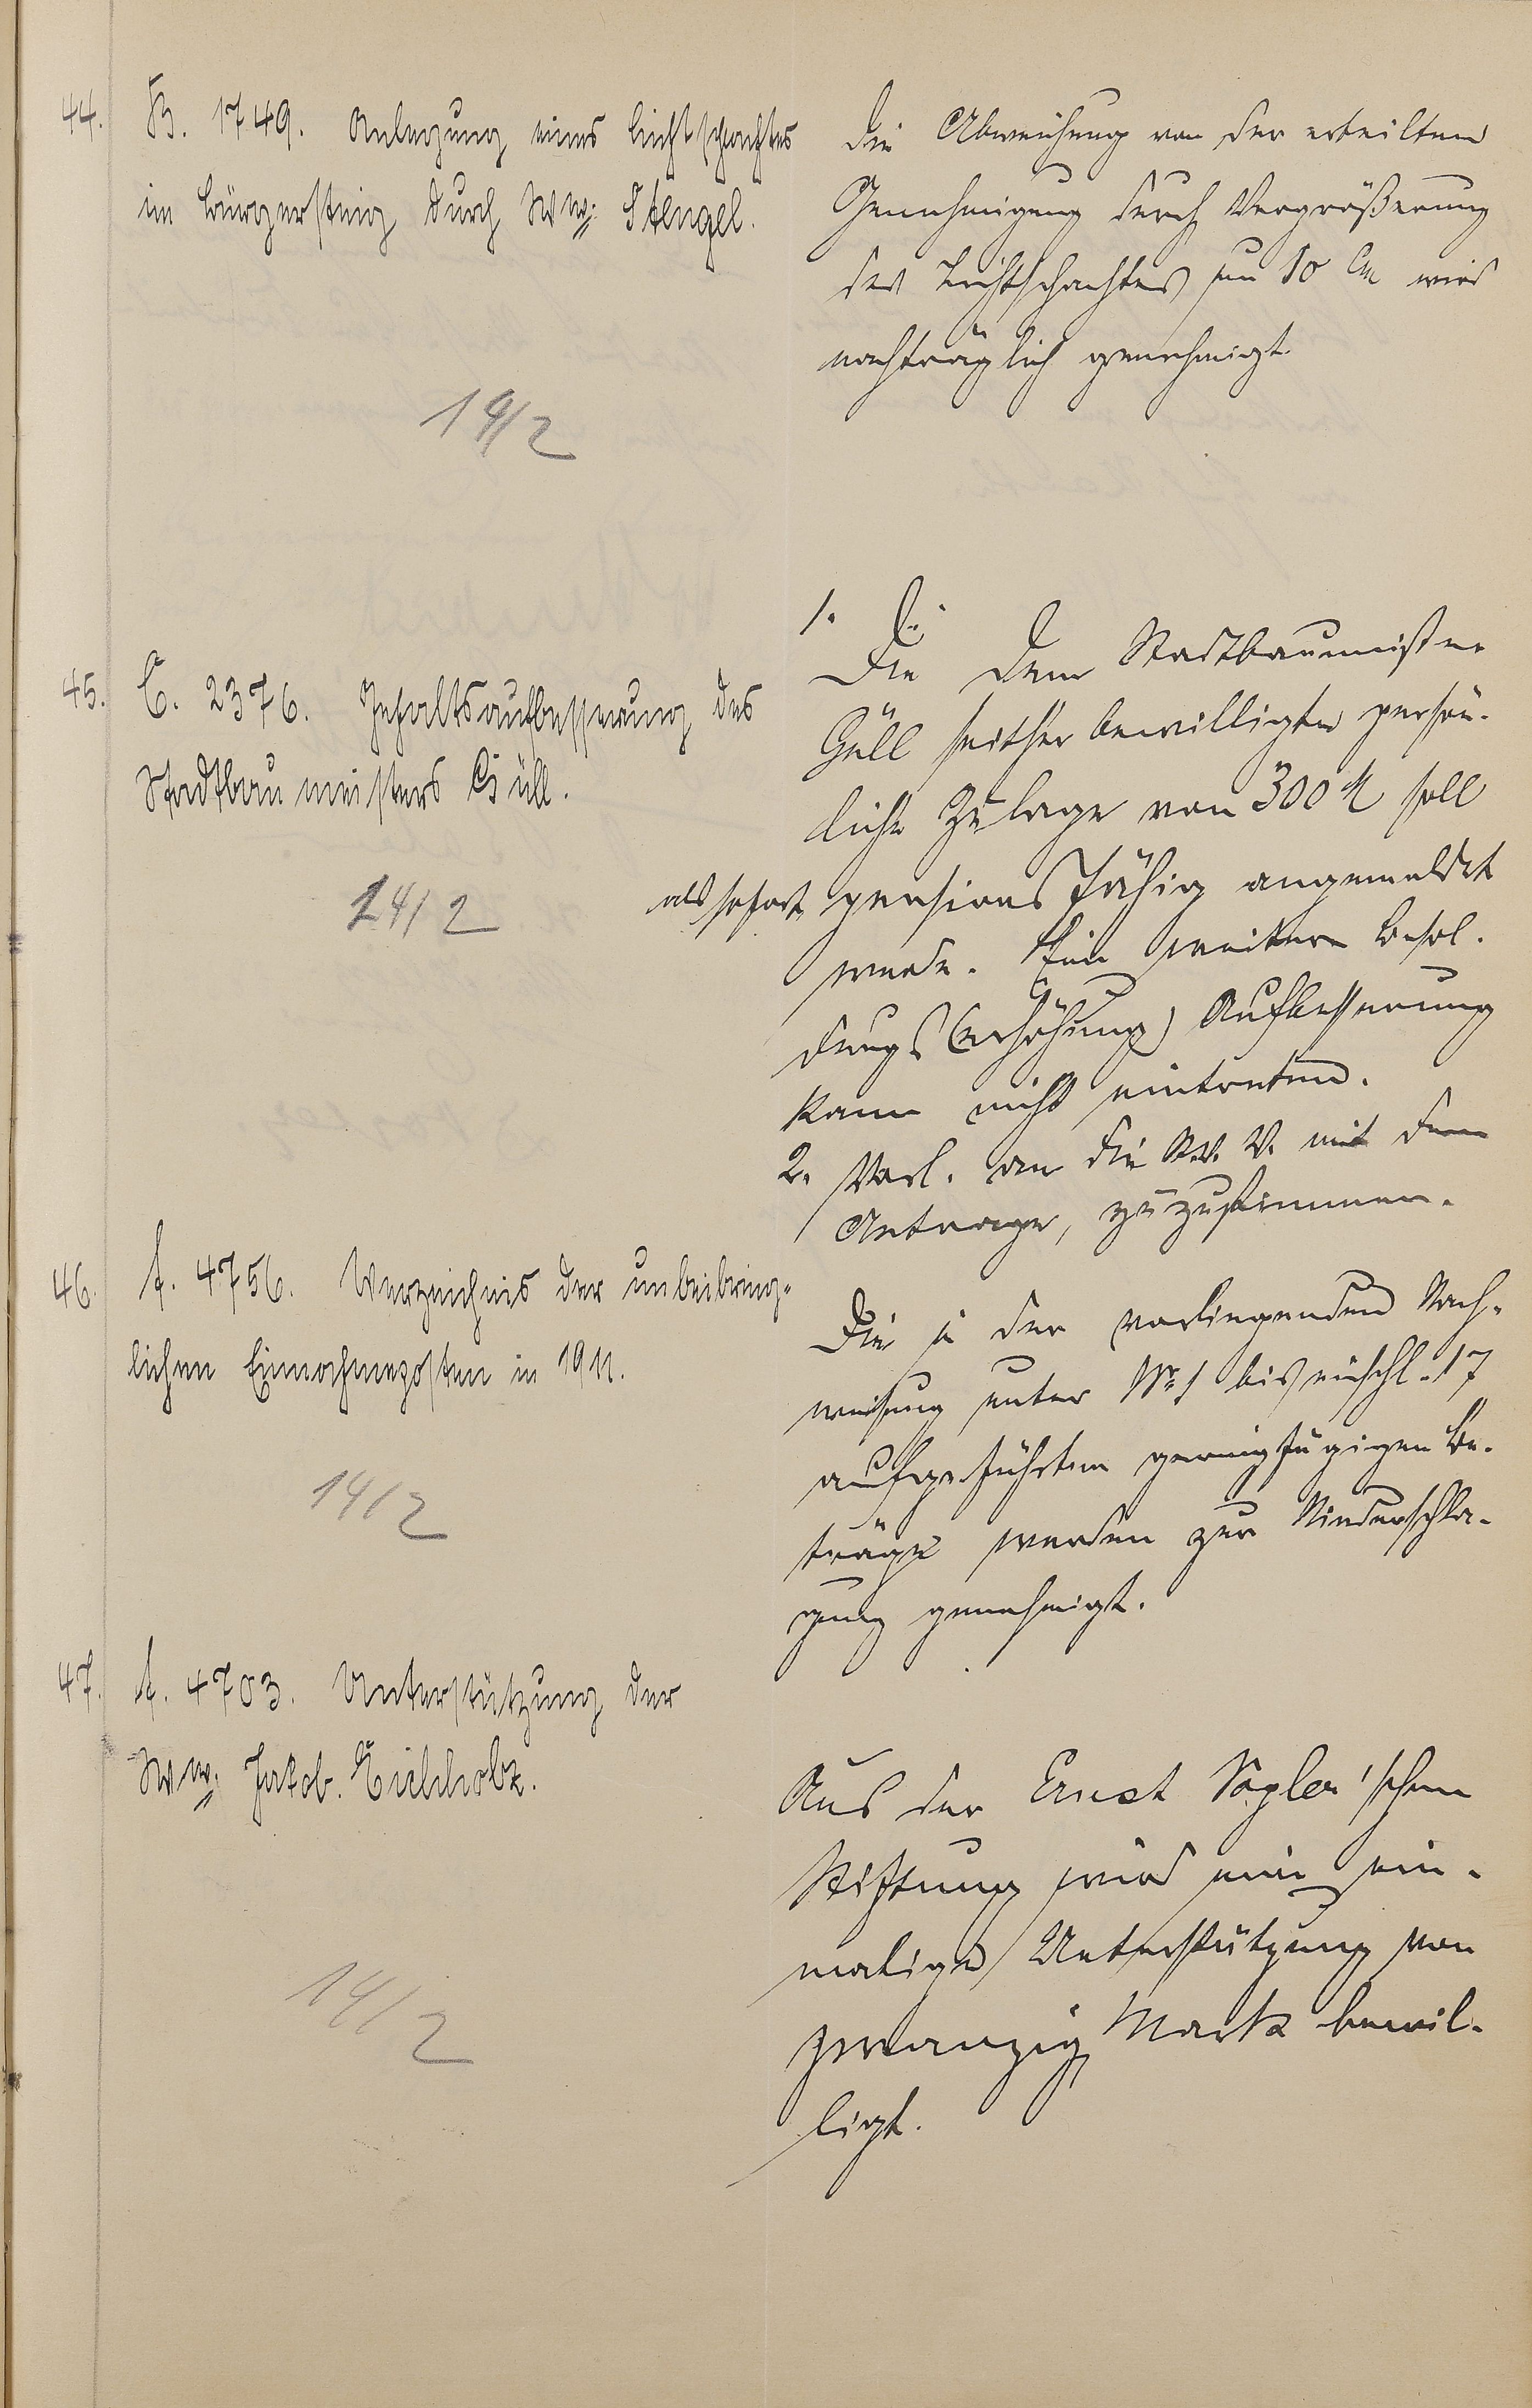 44. B. 1749. Anlegung eines Lichtschachtes
im Bürgersteig durch Ww: Stengel.
Die Abweichung von der erteilten
Genehmigung durch Vergrößerung
des Lichtschachtes um 10 cm wird
nachträglich genehmigt.
14/2
45. C. 2376. Gehaltsaufbesserung des
Stadtbaumeisters Güll.
1. Die dem Stadtbaumeister
Güll seither bewilligte persön-
liche Zulage von 300 M soll
als sofort pensionsfähig angemeldet
werde. Ein weitere Besol-
dungs (erhöhung) Aufbesserung
kann nicht eintreten.
2. Vorl. an die St. V. V. mit dem
Antrage, zuzustimmen.
14/2
46. f. 4756. Verzeichnis der unbeibring-
lichen Einnahmeposten in 1911.
Die in der vorliegenden Nach-
weisung unter Nr. 1 bis einschl. 17
aufgeführten geringfügigen Be-
träge werden zur Niederschla-
gung genehmigt.
14/2
47. f. 4703. Unterstützung der
Ww: Jakob. Eichholz.
Aus der Ernst Vogler'schen
Stiftung wird eine ein-
malige Unterstützung von
zwanzig Mark bewil-
ligt.
14/2